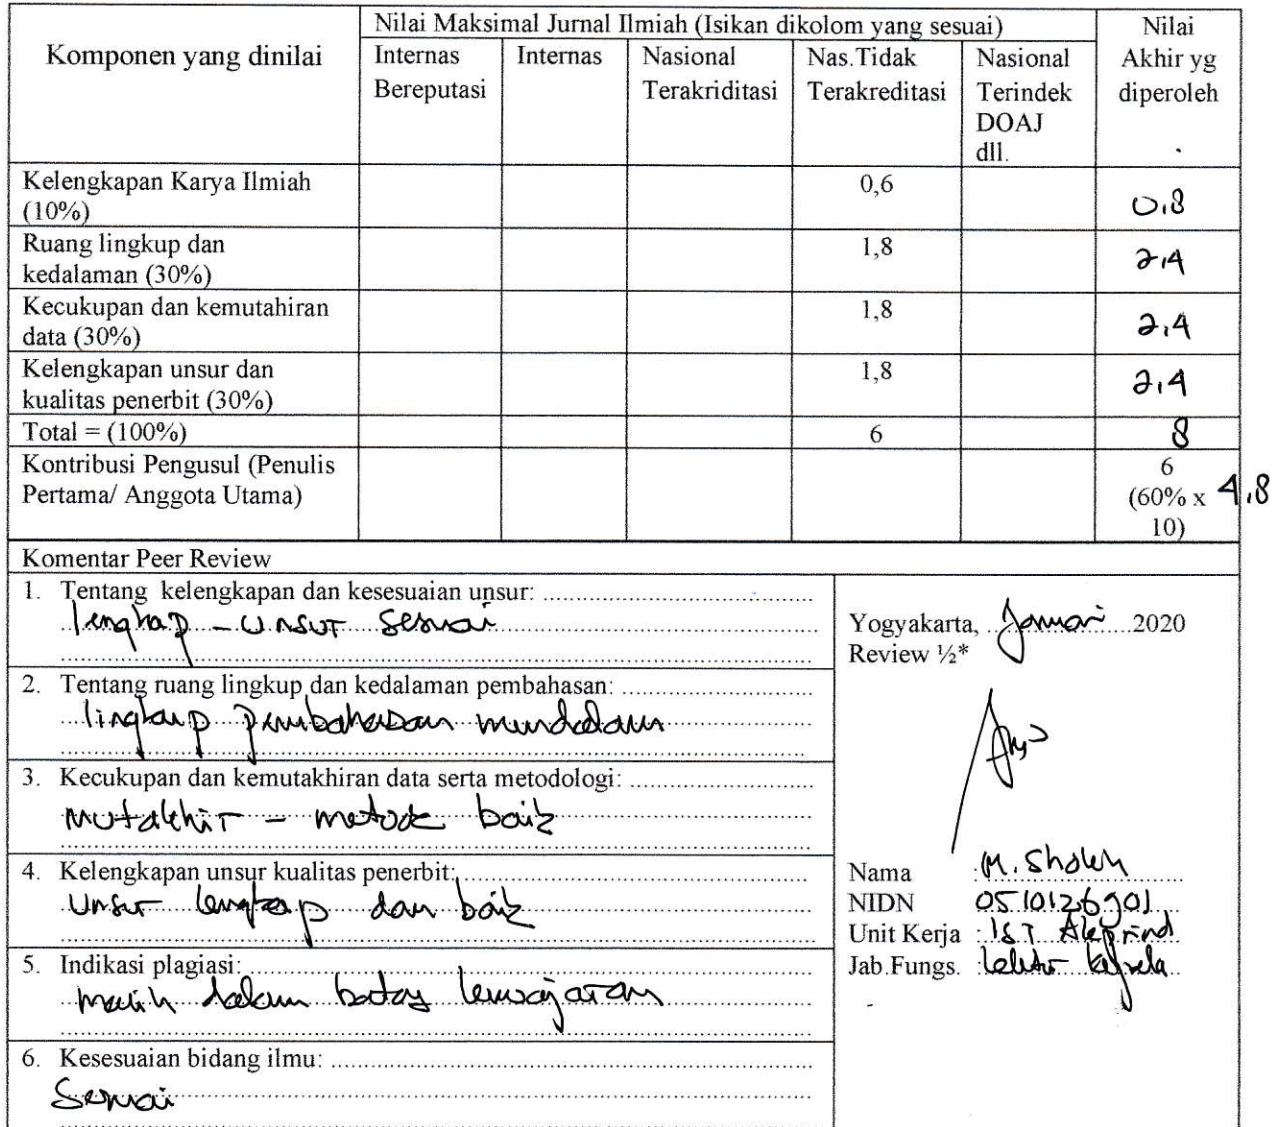 Komponen yang dinilai
Nilai Maksimal Jurnal Ilmiah (Isikan dikolom yang sesuai)
Nilai
Akhir yg
diperoleh
Internas
Bereputasi
Internas
Nasional
Terakriditasi
Nas.Tidak
Terakreditasi
Nasional
Terindek
DOAJ
dll.
Kelengkapan Karya Ilmiah
(10%)
0,6
0,8
Ruang lingkup dan
kedalaman (30%)
1,8
2,4
Kecukupan dan kemutahiran
data (30%)
1,8
2,4
Kelengkapan unsur dan
kualitas penerbit (30%)
1,8
2,4
Total = (100%)
6
8
Kontribusi Pengusul (Penulis
Pertama/ Anggota Utama)
6
(60% x
10)
4,8
Komentar Peer Review
1. Tentang kelengkapan dan kesesuaian unsur:
lengkap - unsur sesuai
2. Tentang ruang lingkup dan kedalaman pembahasan:
lingkup pembahasan mendalam
3. Kecukupan dan kemutakhiran data serta metodologi:
mutakhir - metode baik
4. Kelengkapan unsur kualitas penerbit:
Unsur lengkap dan baik
5. Indikasi plagiasi:
masih dalam batas kewajaran
6. Kesesuaian bidang ilmu:
Sesuai
Yogyakarta, Januari 2020
Review ½*
Nama : M. Sholeh
NIDN 0510126901
Unit Kerja : IST Akprind
Jab.Fungs. : Lektor Kepala